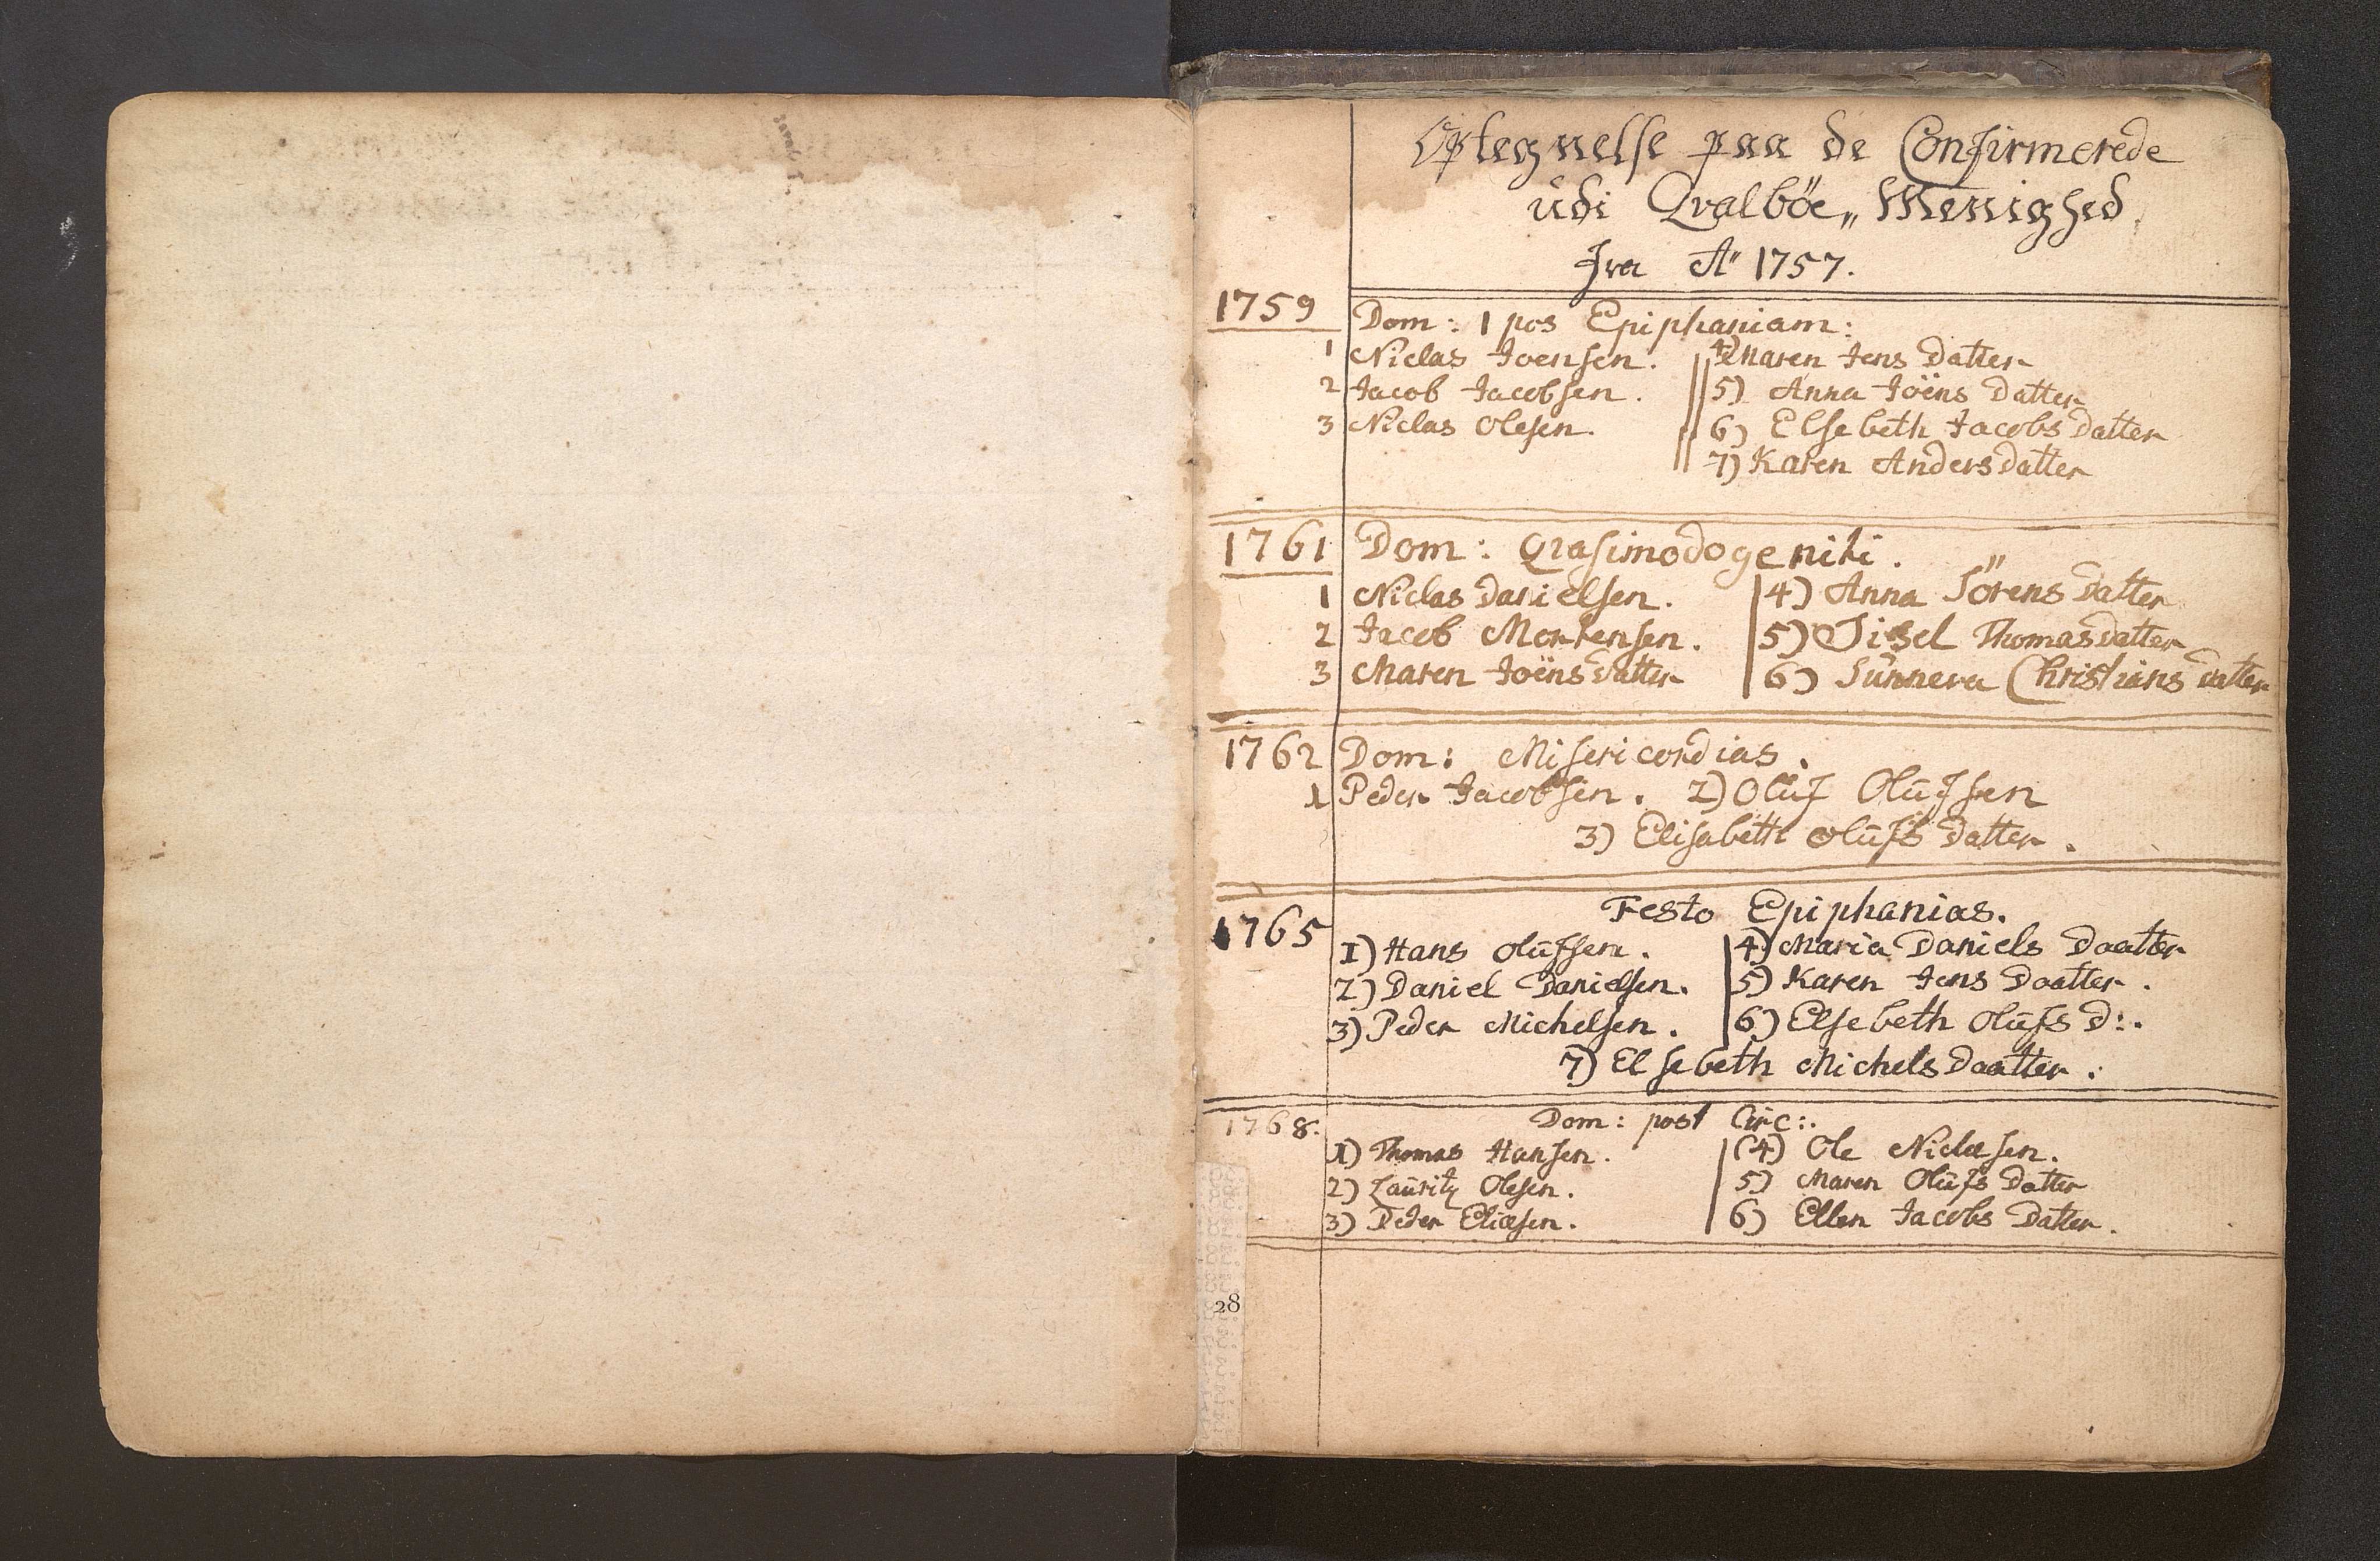 Optegnelse paa de Confirmerede
udi Qvalböe„ Menighed
Fra A° 1757.
1759 Dom: 1 pos Epiphaniam:
1 Niclas Joensen. 4) Maren Jens Datter
2 Jacob Jacobsen. 5) Anna Joëns Datter
3 Niclas Olesen. 6) Elsebeth Jacobs Datter
7) Karen Andersdatter
1761 Dom: Qvasimodogeniti.
1 Niclas Danielsen. 4) Anna Sörens Datter
2 Jacob Mortensen. 5) Sisel Thomasdatter
3 Maren Joëns Datter 6) Sunneva Christians datter
1762 Dom: Misericordias.
1 Peder Jacobsen. 2) Oluf Olufsen
3) Elisabeth Olufs Datter.
1765 Festo Epiphanias.
1) Hans Olufsen. 4) Maria Daniels Daatter
2) Daniel Danielsen. 5) Karen Jens Daatter.
3) Peder Michelsen. 6) Elsebeth Olufs D:.
7) Elsebeth Michels Daatter.
1768. Dom: post Circ:.
1) Thomas Hansen. (4) Ole Niclasen.
2) Lauritz Olesen. 5) Maren Olufs Datter
3) Peder Eliasen. 6) Ellen Jacobs Datter.
28